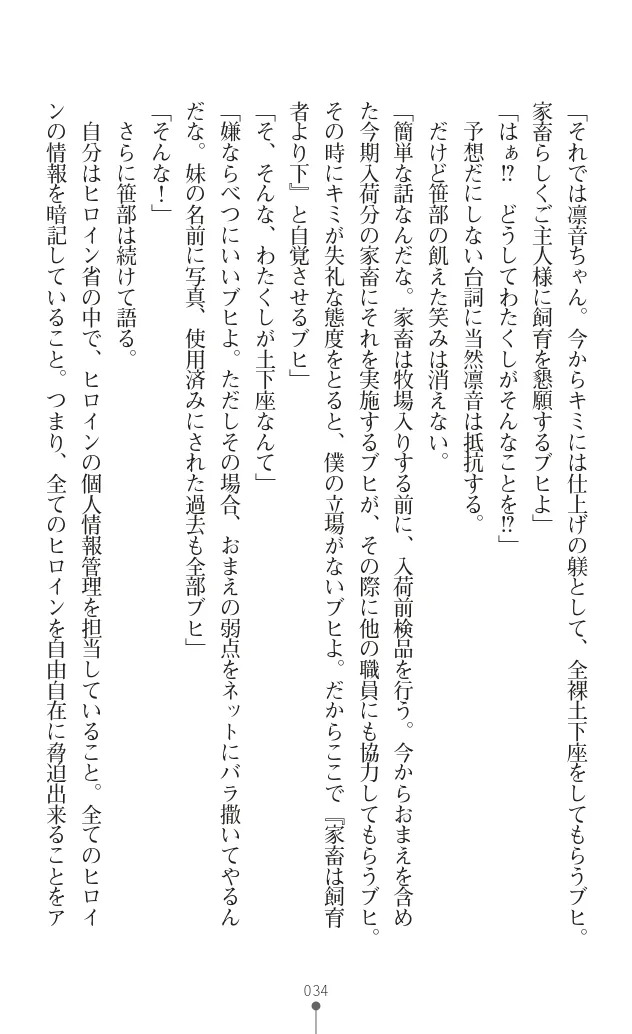 「それでは凛音ちゃん。今からキミには仕上げの躾として、全裸土下座をしてもらうブヒ。
家畜らしくご主人様に飼育を懇願するブヒよ」
「はぁ!?　どうしてわたくしがそんなことを!?」
　予想だにしない台詞に当然凛音は抵抗する。
　だけど笹部の飢えた笑みは消えない。
「簡単な話なんだな。家畜は牧場入りする前に、入荷前検品を行う。今からおまえを含め
た今期入荷分の家畜にそれを実施するブヒが、その際に他の職員にも協力してもらうブヒ。
その時にキミが失礼な態度をとると、僕の立場がないブヒよ。だからここで『家畜は飼育
者より下』と自覚させるブヒ」
「そ、そんな、わたくしが土下座なんて」
「嫌ならべつにいいブヒよ。ただしその場合、おまえの弱点をネットにバラ撒いてやるん
だな。妹の名前に写真、使用済みにされた過去も全部ブヒ」
「そんな！」
　さらに笹部は続けて語る。
　自分はヒロイン省の中で、ヒロインの個人情報管理を担当していること。全てのヒロイ
ンの情報を暗記していること。つまり、全てのヒロインを自由自在に脅迫出来ることをア
034